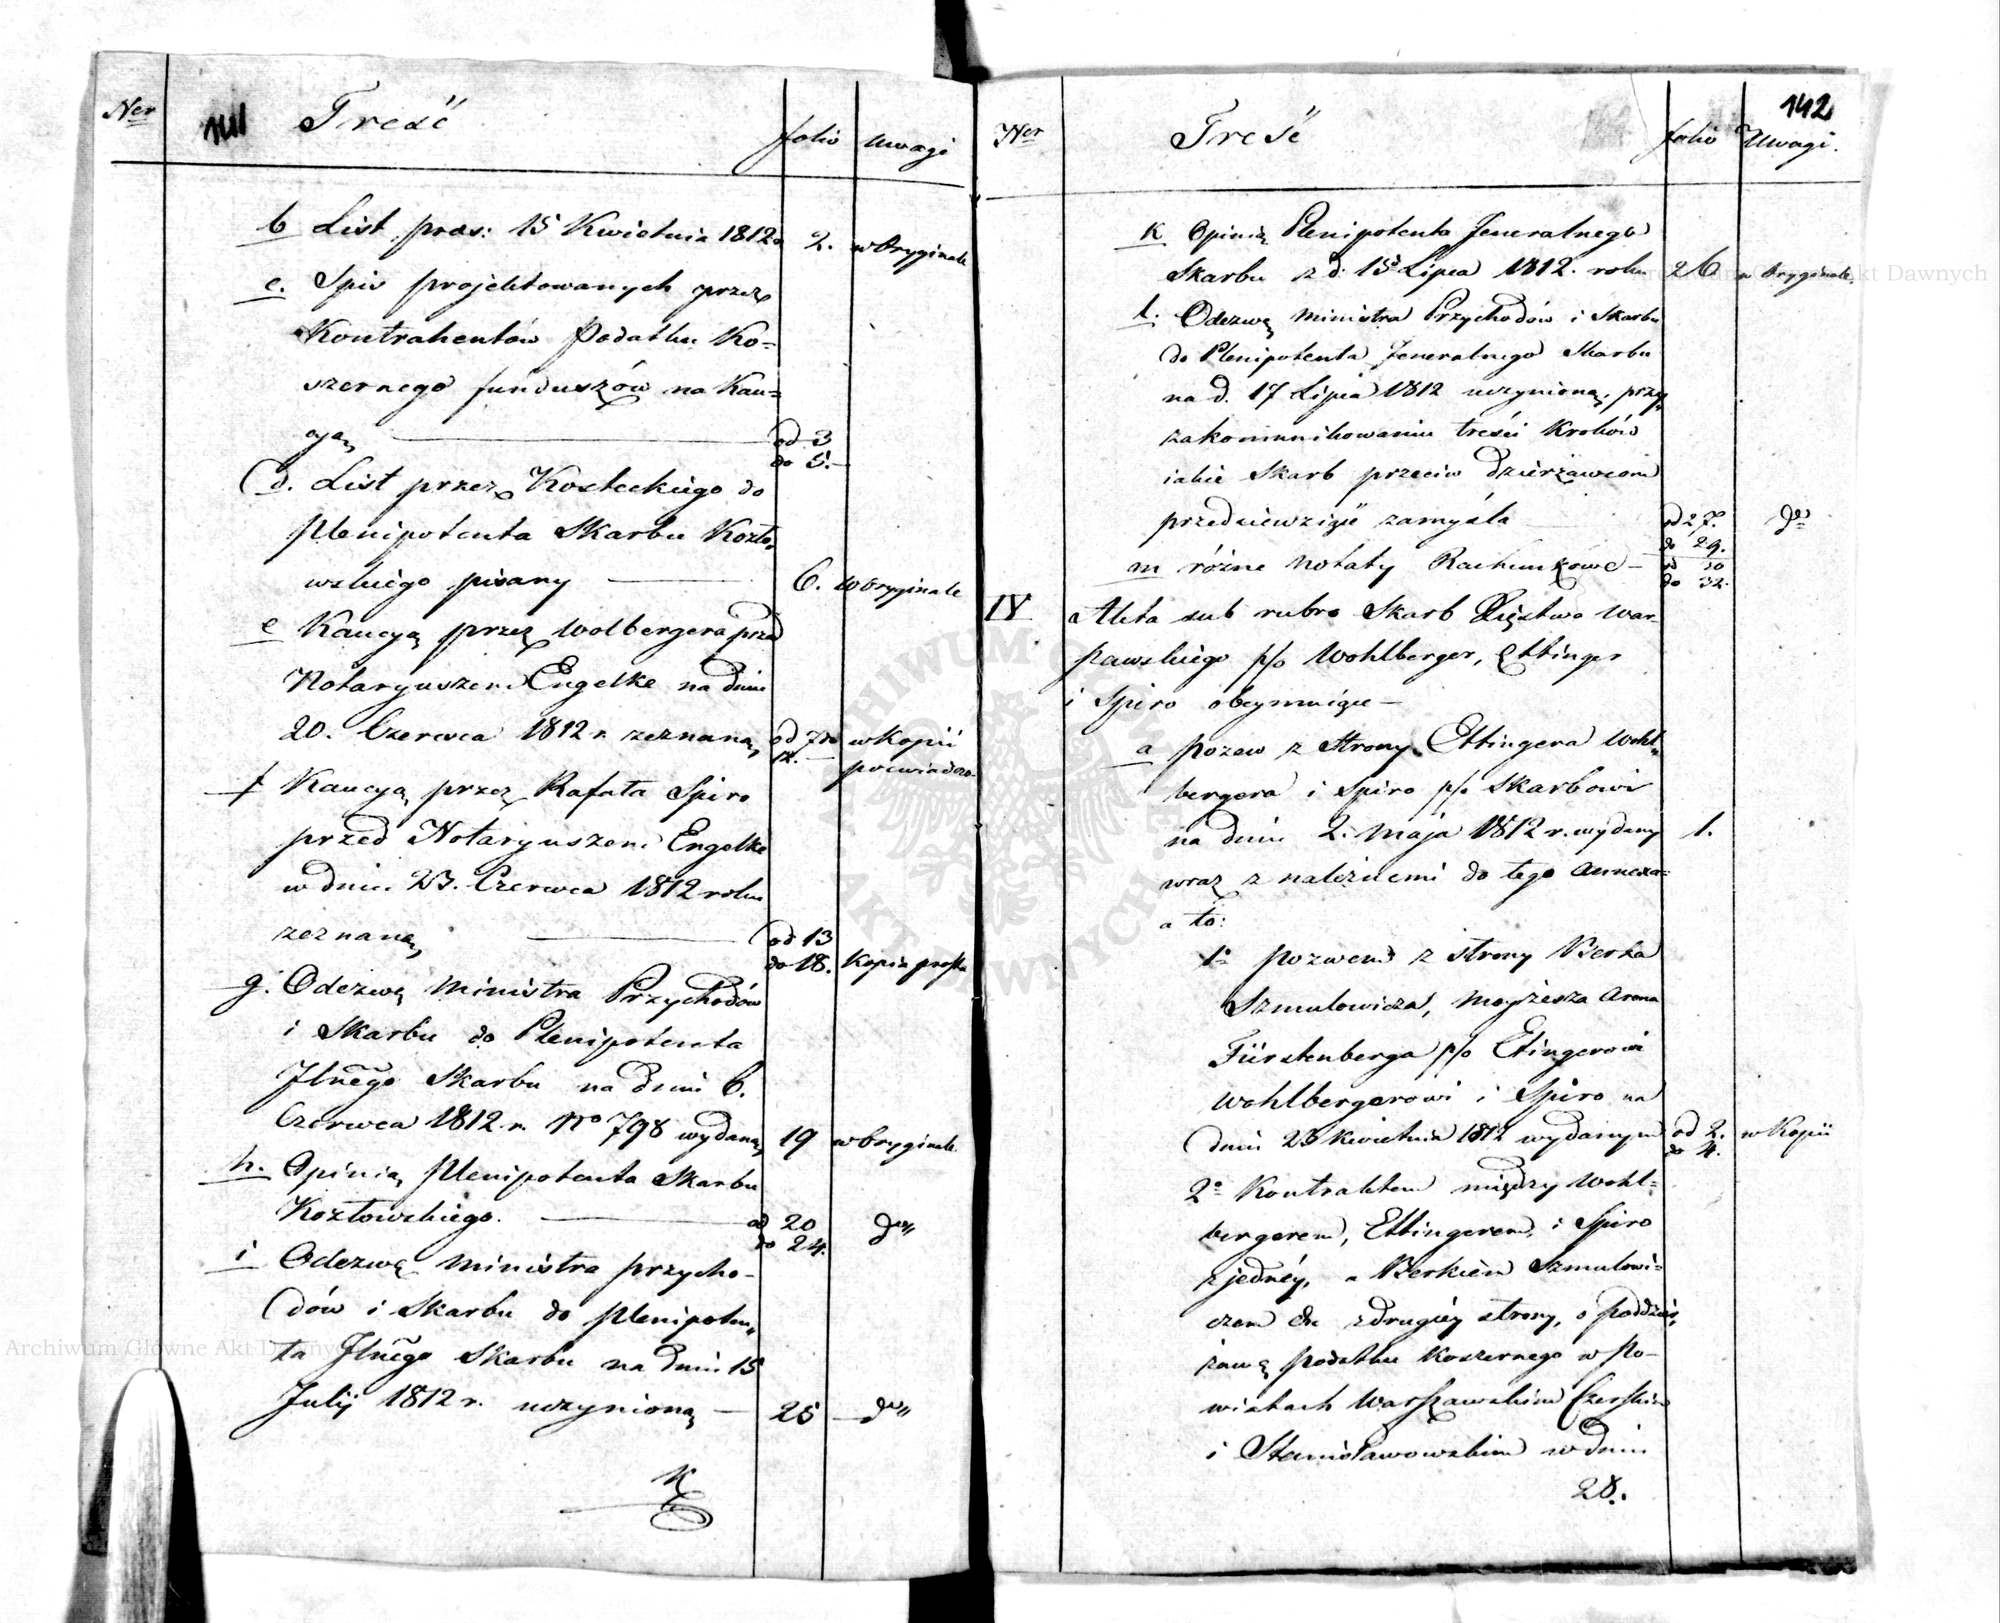 Ner
141
Treść
folio
uwagi
b List praes: 15 Kwietnia 1812
2.
w Oryginale
c. Spis projektowanych przez
Kontrahentów Podatku Ko=
szernego funduszów na Kau=
cyą
od 3
do 5.
d. List przez Kosteckiego do
Plenipotenta Skarbu Kozło=
wskiego pisany
6.
w oryginale
e Kaucyą przez Wolbergera przed
Notaryuszem Engelke na dniu
20. Czerwca 1812 r. zeznaną
od 7 do
12.
w Kopii
poswiadczo-
f Kaucyą przez Rafała Spiro
przed Notaryuszem Engelke
w dniu 23. Czerwca 1812 roku
zeznaną
od 13
do 18.
Kopia prosta
g. Odezwę Ministra Przychodów
i Skarbu do Plenipotenta
Jlnego Skarbu na dniu 6.
Czerwca 1812 r. No 798 wydaną
19
w Oryginale
h. Opinią Plenipotenta Skarbu
Kozłowskiego.
od 20
do 24.
do
i Odezwę Ministra przycho-
dów i Skarbu do Plenipoten=
ta Jlnego Skarbu na dniu 15
Julij 1812 r. uczynioną
25
do
K
Ner
Treść
folio
Uwagi.
142
k Opinią Plenipotenta Jeneralnego
Skarbu z d. 15 Lipca 1812. roku
26
w Oryginale.
l. Odezwę Ministra Przychodów i Skarbu
do Plenipotenta Jeneralnego Skarbu
na d. 17 Lipca 1812 uczynioną, przy
zakommunikowaniu treści Kroków
iakie Skarb przeciw dzierżawcom
przedsiewziąć zamyśla
od 27.
do 29.
do
m różne notaty Rachunkowe
od 30
do 32.
IV
Akta sub rubro Skarb Xięstwa War=
szawskiego p/o Wohlberger, Ettinger
i Spiro obeymuiące
a pozew z strony Ettingera Wohl=
bergera i Spiro p/o Skarbowi
na dniu 2. Maja 1812 r. wydany
1.
wraz z należnemi do tego Annexa=
a to:
1o pozwem z strony Berka
Szmulowicza, Moyżesza Arona
Fürstenberga p/o Etingerowi
Wohlbergerowi i Spiro na
dniu 23 Kwietnia 1812 wydanym
od 2.
do 4.
w Kopii
2o Kontraktem między Wohl=
bergerem, Ettingerem, i Spiro
z jednéy, a Berkiem Szmulowi=
czem z drugiéy strony, o poddzier=
żawę podatku koszernego w Po-
wiatach Warszawskim Czerskim
i Stanisławowskim w dniu
28.
Archiwum Główne Akt Dawnych
Archiwum Główne Akt Dawnych
ARCHIWUM GŁÓWNE AKT DAWNYCH